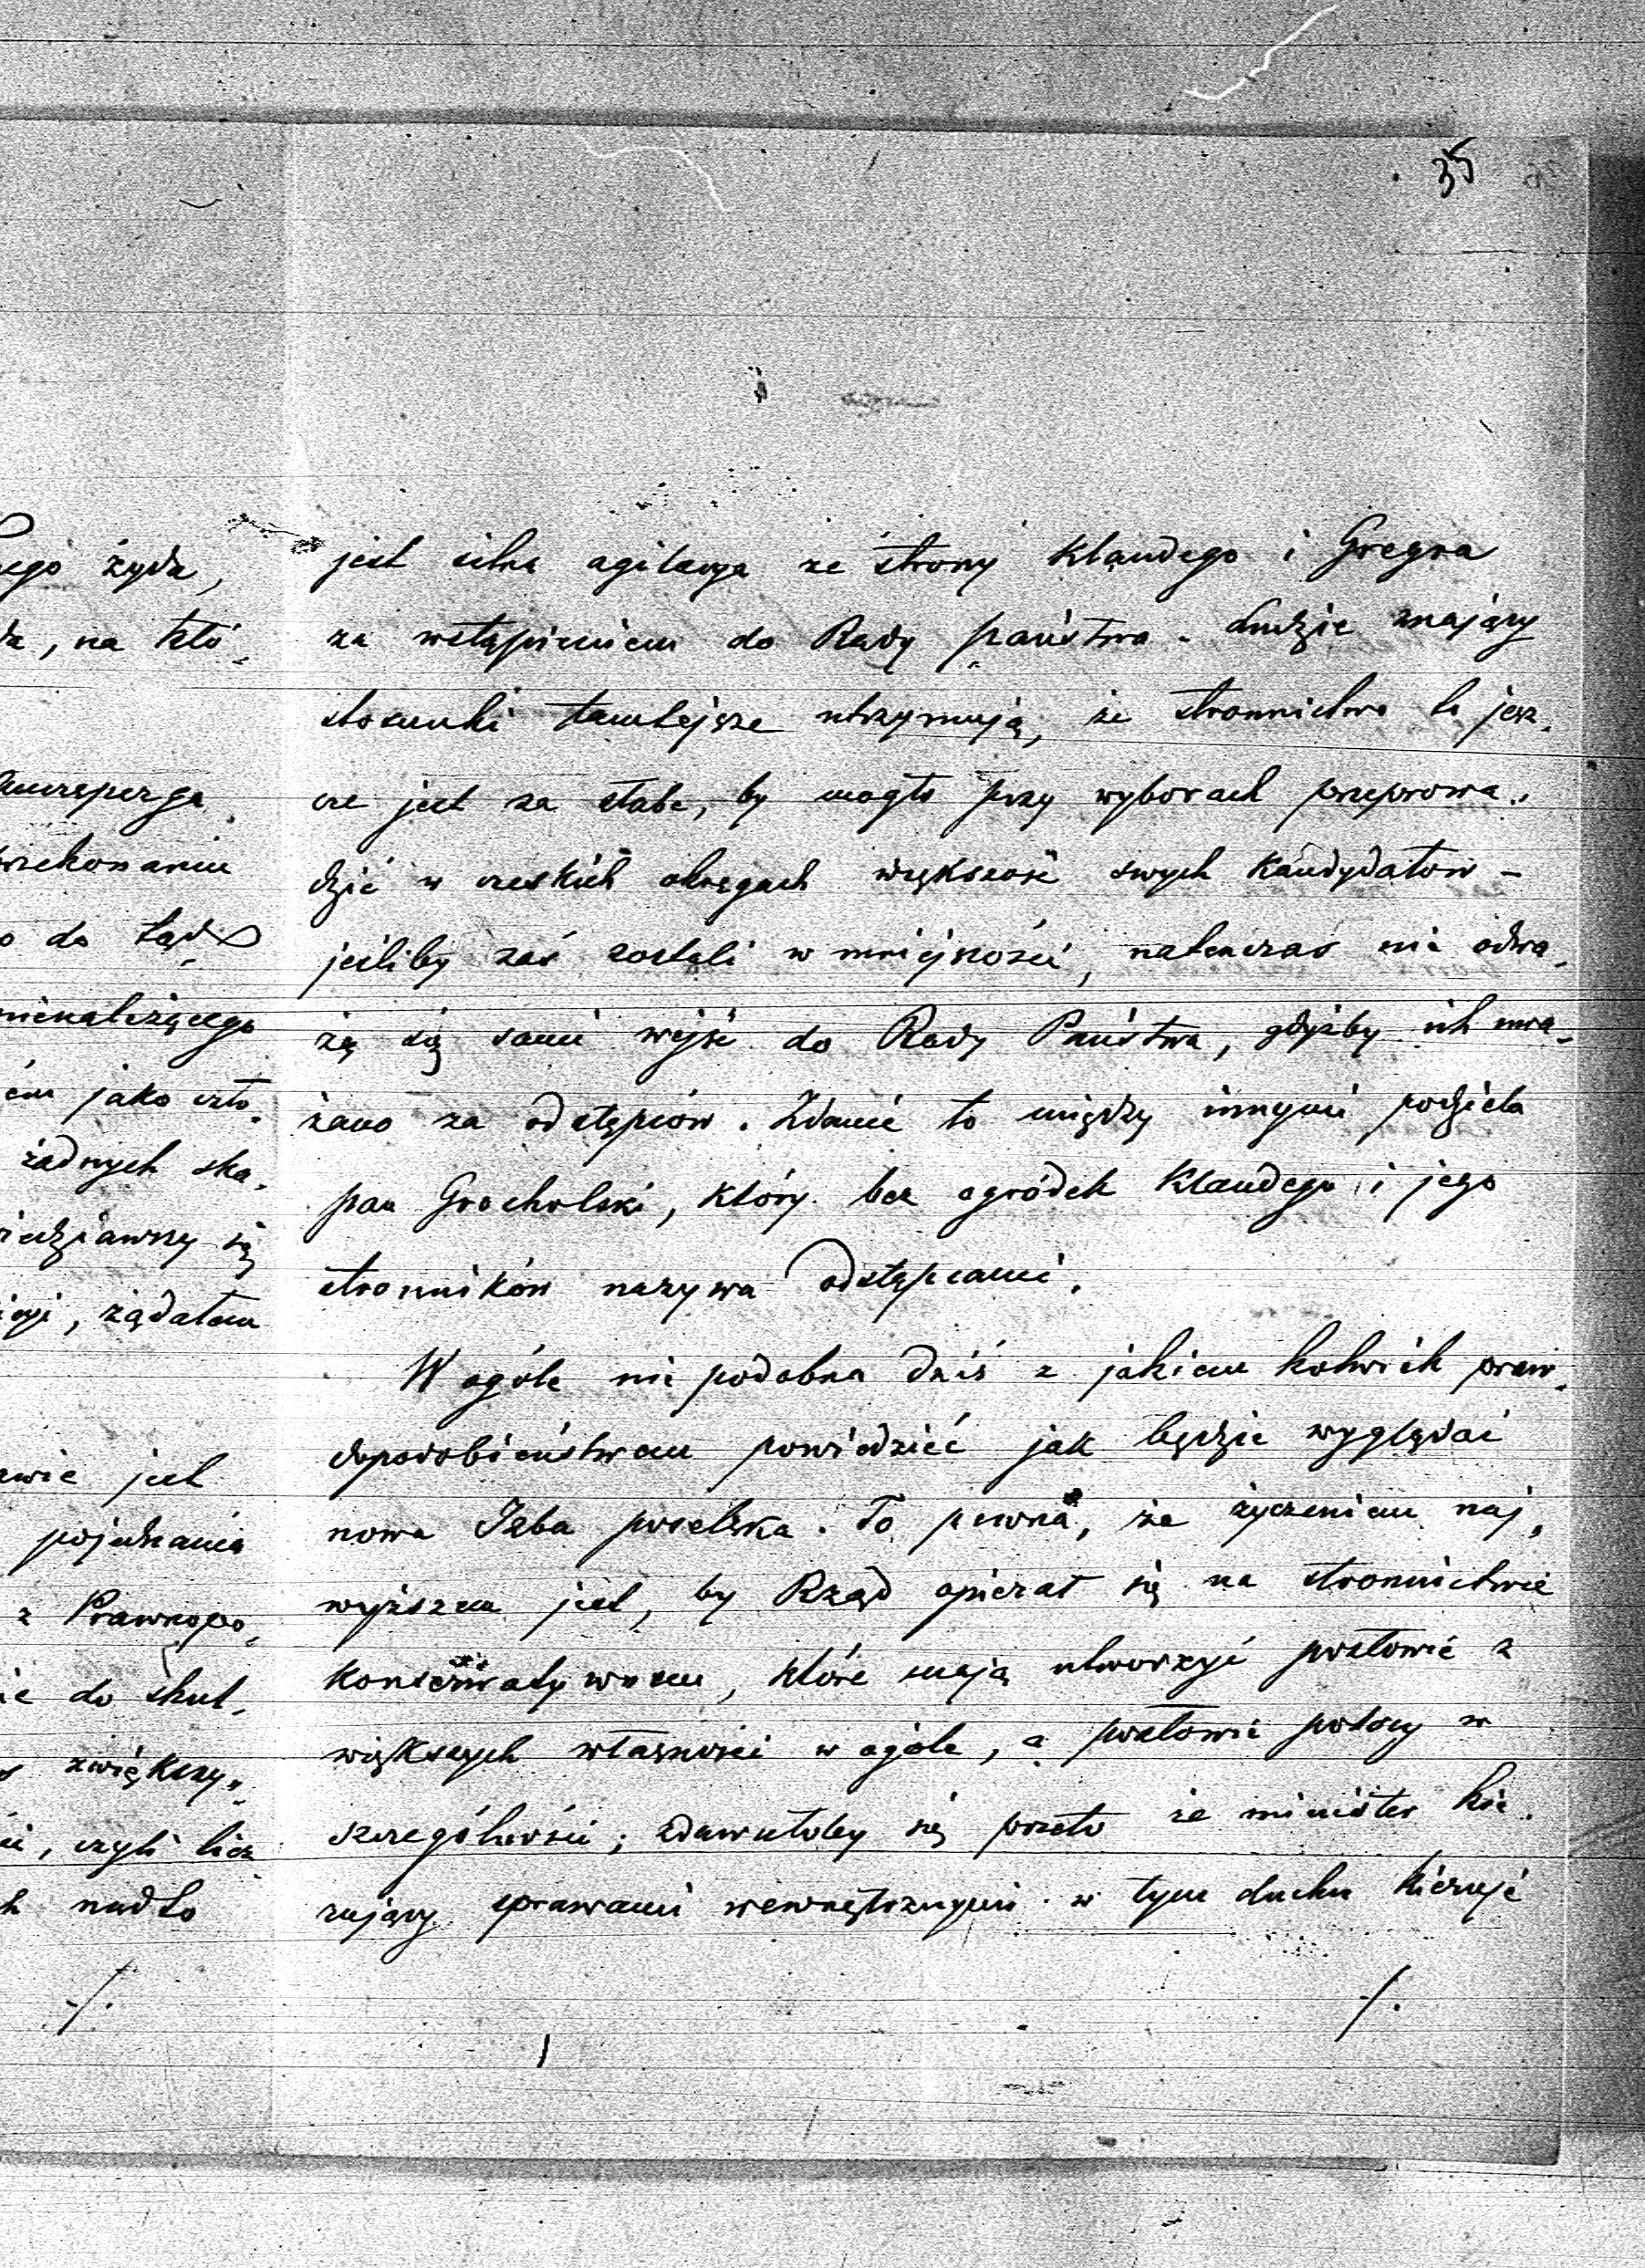 35
jest silna agitacya ze strony Klaudego i Gregra
za wstąpieniem do Rady państwa. Ludzie znający
stosunki tamtejsze utrzymują, że stronnictwo to jesz-
cze jest za słabe, by mogło przy wyborach przeprowa-
dzić w czeskich okręgach większość swych Kandydatów -
jeśliby zaś zostali w mniejszości, natenczas nie odwa-
żą się sami wejść do Rady Państwa, gdyżby ich uwa-
żano za odstępców. Zdanie to między innymi podziela
pan Grocholski, który bez ogródek Klaudego i jego
stronników nazywa odstępcami.
W ogóle nie podobna dziś z jakiem kolwiek praw-
dopodobieństwem powiedzieć jak będzie wyglądać
nowa Izba poselska. To pewna, że życzeniem naj-
wyższem jest, by Rząd opierał się na stronnictwie
Konserwatywnem, które mają utworzyć posłowie z
większych własności w ogóle, a posłowie polscy w
szczególności; zdawałoby się przeto że minister kie-
rujący sprawami wewnętrznymi w tym duchu kieruje
./.
żyda,
, na któ-
do
jako czło-
żadnych ska-
się
, żądałem
jest
pojechania
z Prawnopo-
do skut-
zwiększy-
, czyli licz
nadto
./.